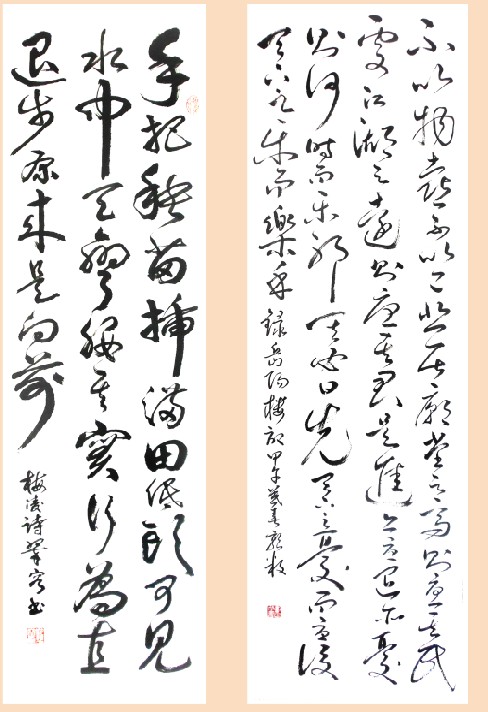 不以物喜不以己悲居廟堂之高則憂其民
處江湖之遠則憂其君是進亦憂退亦憂
則何時而樂耶其必曰先天下之憂而憂後
天下之樂而樂乎 錄岳陽樓記 甲午
手把秧苗插滿田低頭可見
水中天彎腰其實行為直
退步原來是向前
梅凌詩 書